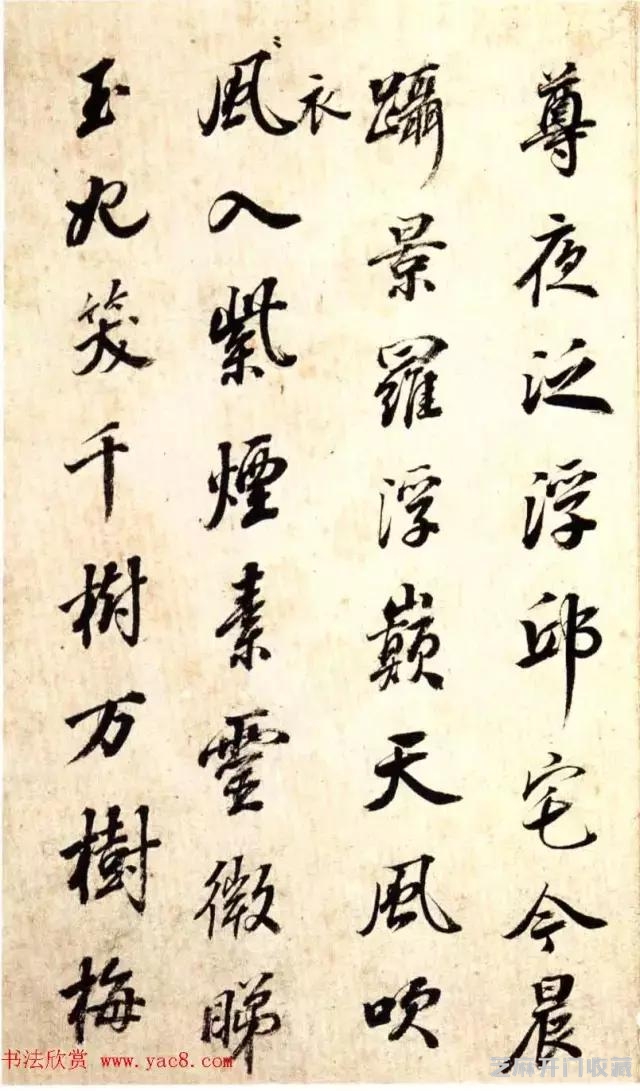 尊夜泛浮邱宅今晨
躡景羅浮巔天風吹
風衣入紫煙素靈微睇
玉妃笑千樹万樹梅
书法欣赏 www.yac8.com
芝麻开门收藏